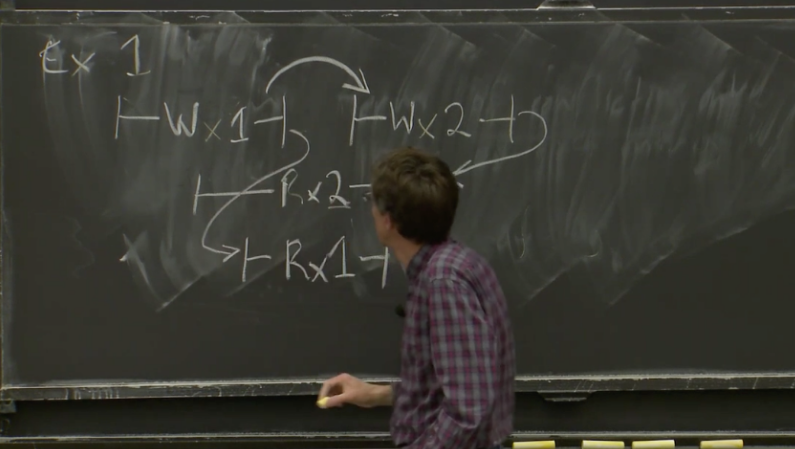 Ex 1
|-Wx1-| |-Wx2-|
|-Rx2-
|-Rx1-|